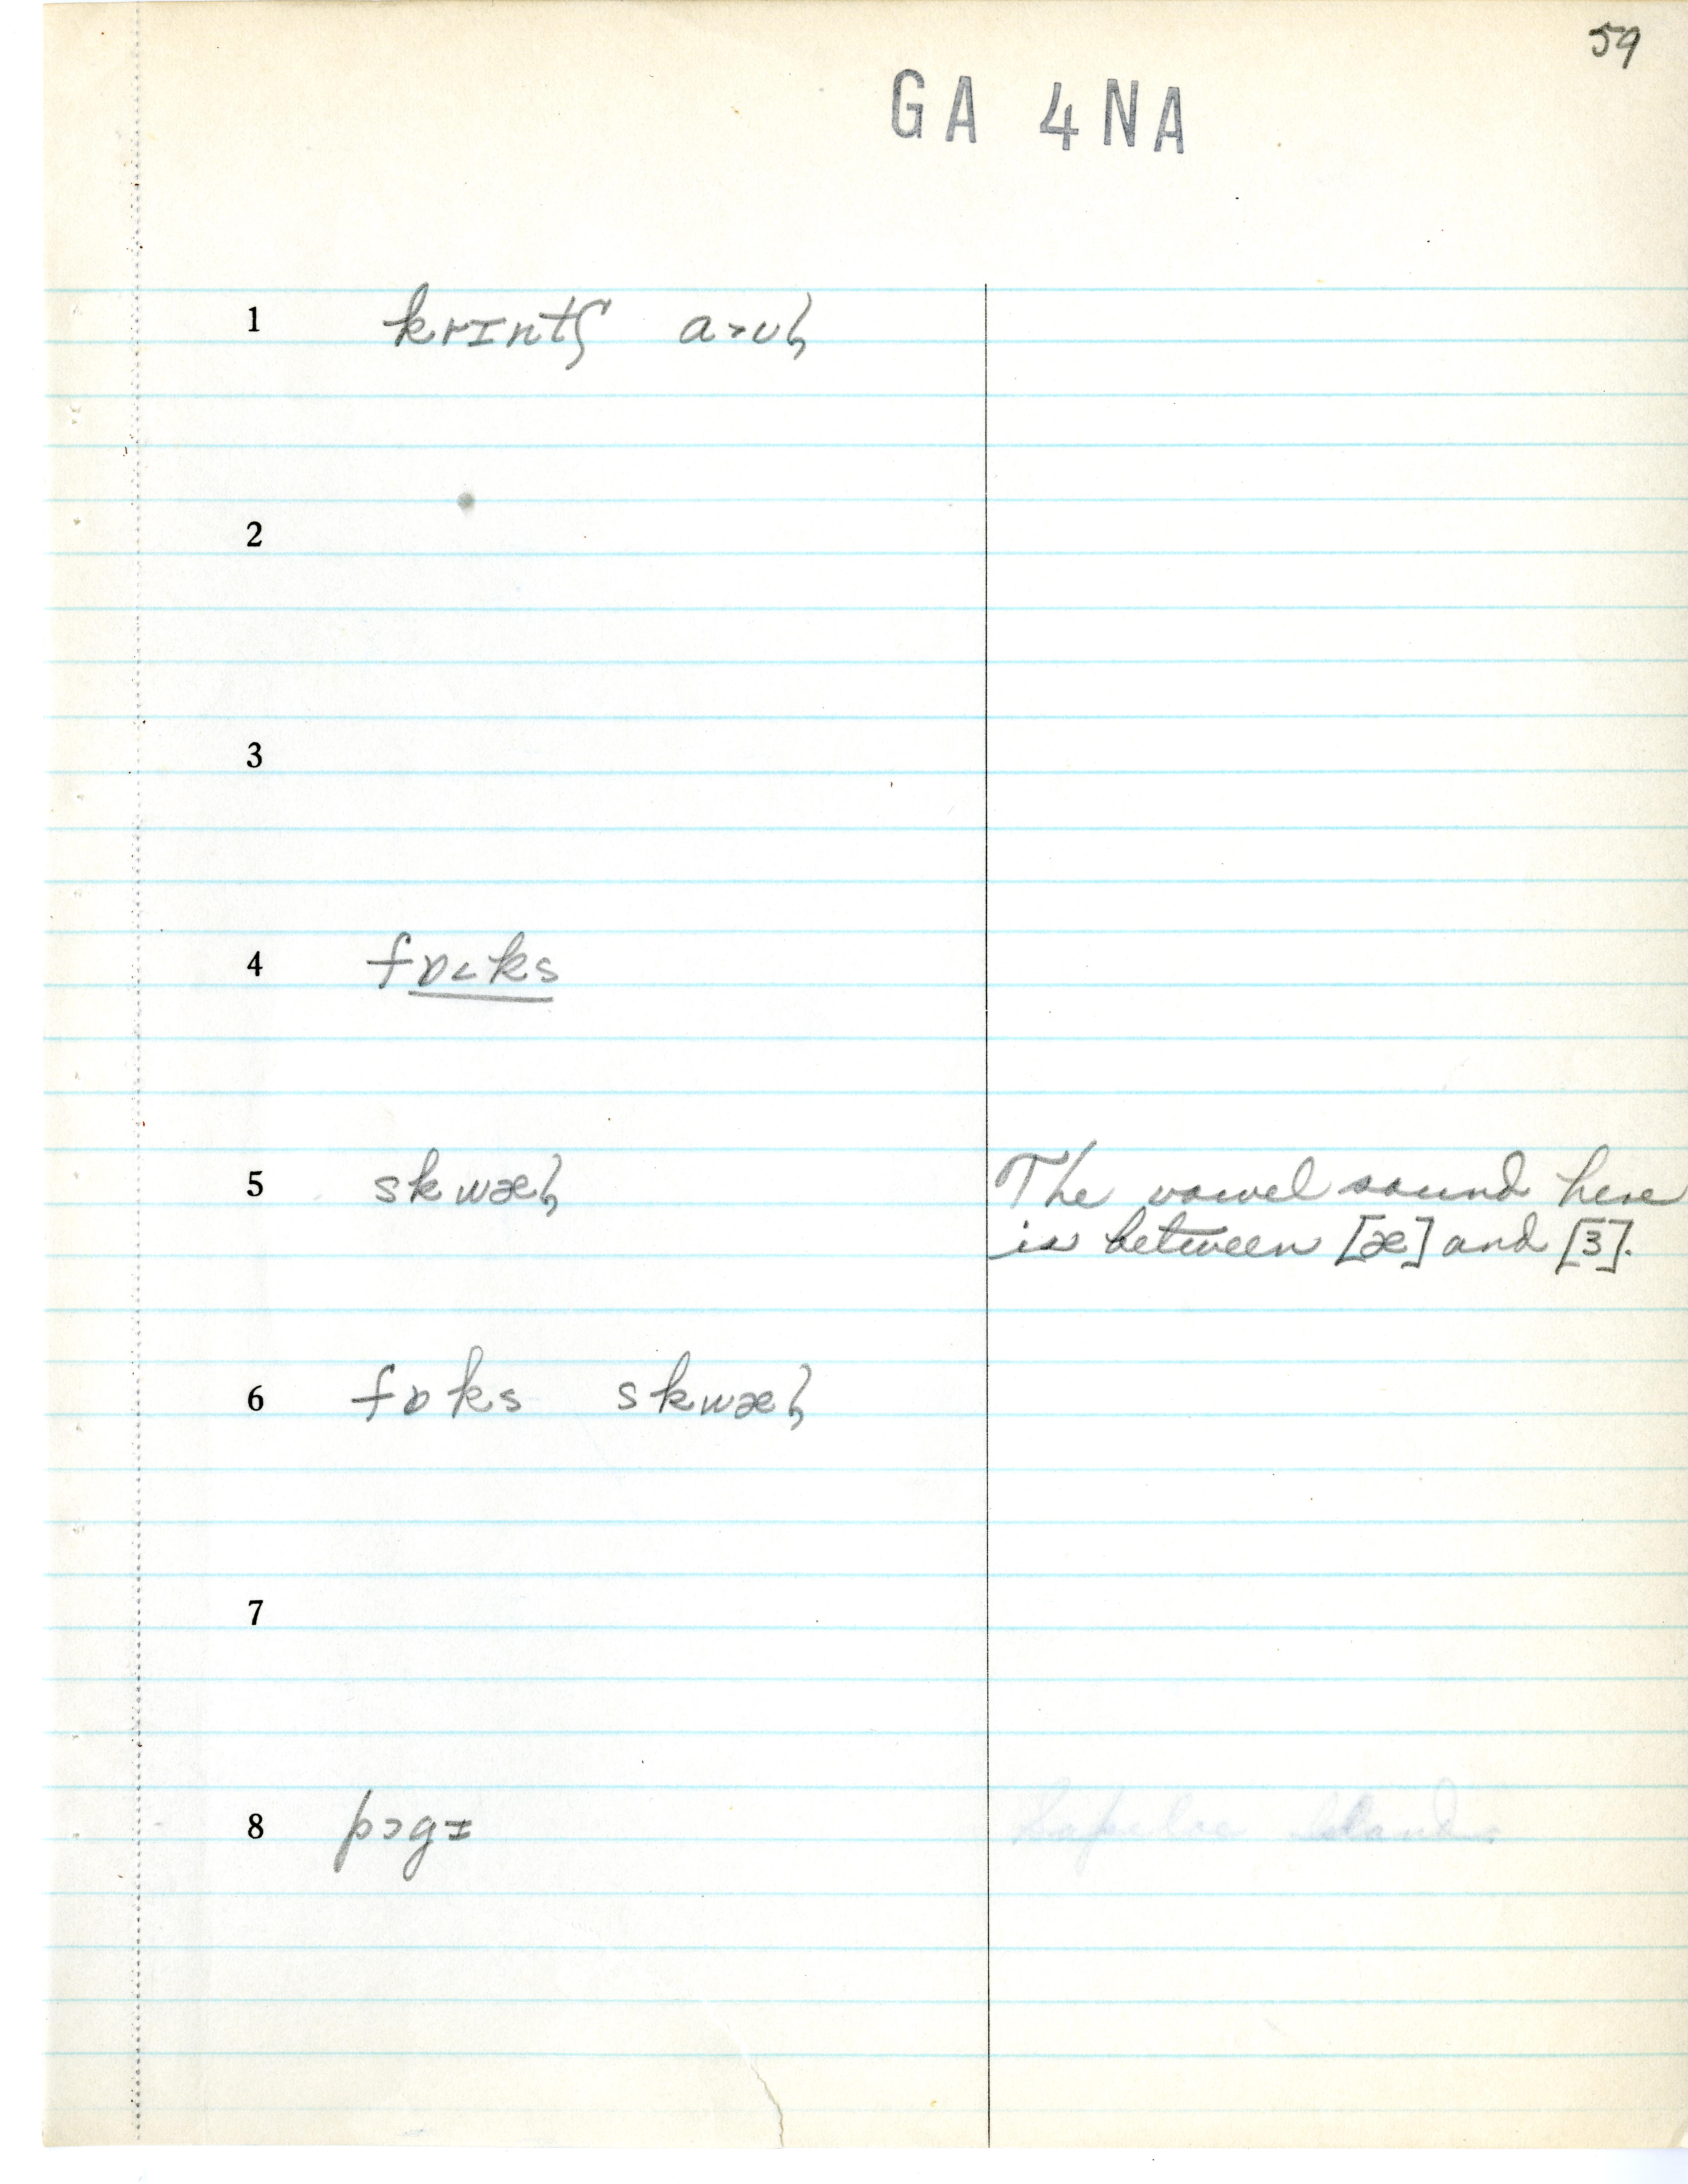 59
GA 4NA
1 krɪntʃ a>ʊɫ
2
3
4 fɒ<ks
5 skwæɫ The vowel sound here
is between [æ] and [ɜ].
6 fɒks skwæɫ
7
8 pɔgɪ Sapeloe Island.